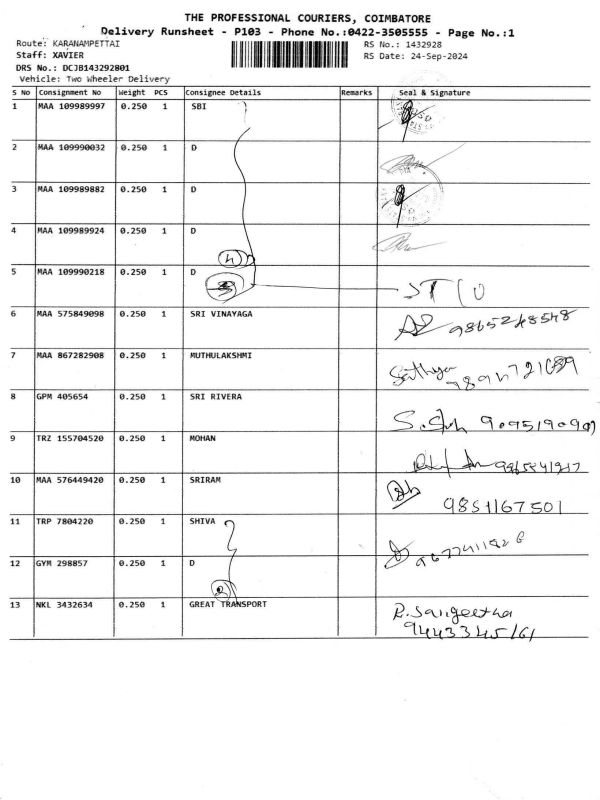 THE PROFESSIONAL COURIERS, COIMBATORE
Delivery Runsheet - P103 - Phone No.:0422-3505555 - Page No.:1
Route: KARANAMPETTAI
RS No.: 1432928
Staff: XAVIER
RS Date: 24-Sep-2024
DRS No.: DCJB143292801
Vehicle: Two Wheeler Delivery
S No Consignment No Weight PCS Consignee Details Remarks Seal & Signature
1 MAA 109989997 0.250 1 SBI
2 MAA 109990032 0.250 1 D
3 MAA 109989882 0.250 1 D
4 MAA 109989924 0.250 1 D
5 MAA 109990218 0.250 1 D
6 MAA 575849098 0.250 1 SRI VINAYAGA
7 MAA 867282908 0.250 1 MUTHULAKSHMI
Sathya
8 GPM 405654 0.250 1 SRI RIVERA
9 TRZ 155704520 0.250 1 MOHAN
10 MAA 576449420 0.250 1 SRIRAM
9851167501
11 TRP 7804220 0.250 1 SHIVA
12 GYM 298857 0.250 1 D
13 NKL 3432634 0.250 1 GREAT TRANSPORT
R. Sangeetha
9443345161